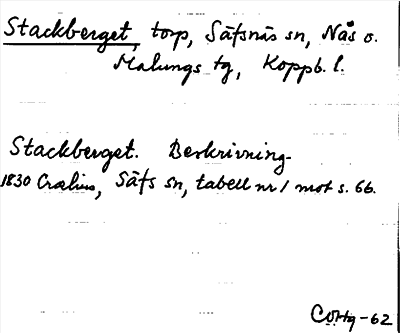 Stackberget, torp, Säfsnäs sn, Nås o.
Malungs tg, Koppb. l.
Stackberget. Beskrivning.
1830 Crælius, Säfs sn, tabell nr 1 mot s. 66.
-62